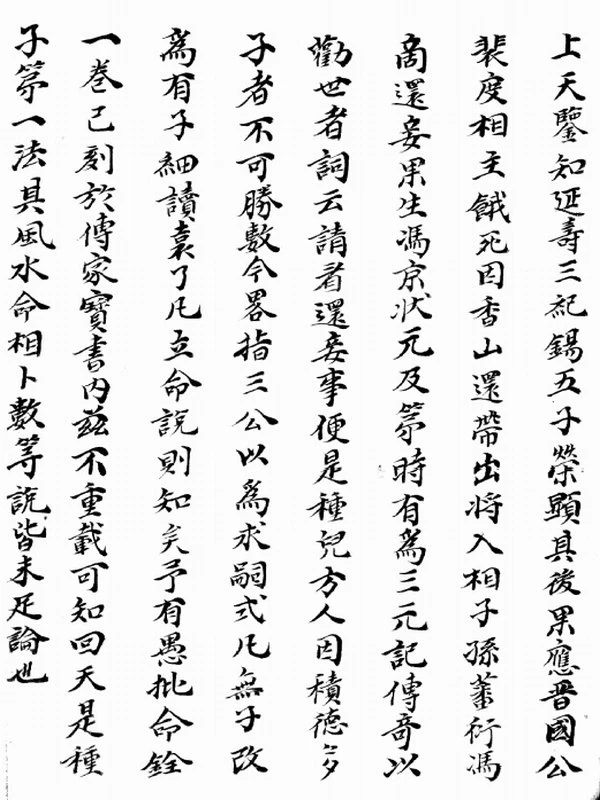 上天鑒知延壽三紀錫五子榮顯其後果應晉國公
裴度相主餓死因香山還帶出將入相子孫蕃衍馮
商還妾果生馮京狀元及第時有為三元記傳奇以
勸世者詞云請看還妾事便是種兒方人因積德多
子者不可勝數今畧指三公以為求嗣式凡無子改
為有子細讀袁了凡立命說則知矣予有愚批命銓
一卷已刻於傳家寶書內茲不重載可知回天是種
子第一法其風水命相卜數等說皆未足論也